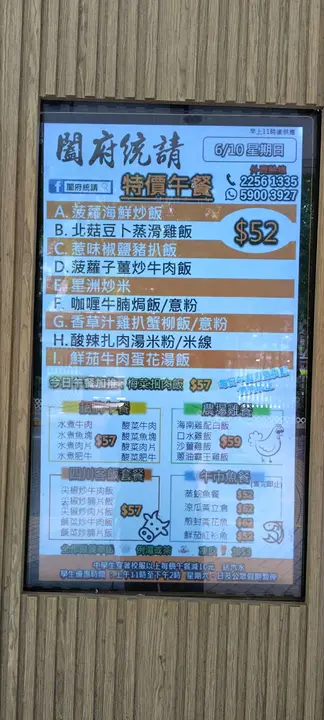 早上11時後供應
闔府統請
6/10 星期日
闔府統請
特價午餐
2256 1335
5900 3927
A. 菠蘿海鮮炒飯
B. 北菇豆卜蒸滑雞飯
$52
C. 惹味椒鹽豬扒飯
D. 菠蘿子薑炒牛肉飯
E. 星洲炒米
F. 咖喱牛腩焗飯/意粉
G. 香草汁雞扒蟹柳飯/意粉
H. 酸辣扎肉湯米粉/米線
I. 鮮茄牛肉蛋花湯飯
今日午餐加推: 梅菜扣肉飯 $57
農場雞餐
水煮牛肉 酸菜牛肉
水煮魚塊 酸菜魚塊
水煮肉片 酸菜肉片
水煮肥牛 酸菜肥牛
$57
海南雞配白飯
口水雞飯
沙薑雞飯
蔥油霸王雞飯
$59
四川客飯套餐
尖椒炒牛肉飯
尖椒炒腩片飯
尖椒炒肉片飯
鹹菜炒牛肉飯
鹹菜炒腩片飯
$57
牛市魚餐
蒸鯇魚餐 $52
涼瓜黃立倉 $62
煎封黃花魚 $62
鮮茄紅衫魚 $52
中學生穿著校服以上每碗午餐減10元，送汽水
學生優惠時間：上午11時至下午2時 星期六、日及公眾假期暫停